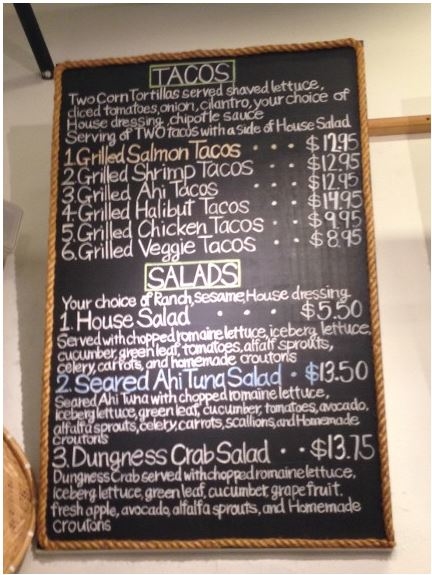 TACOS
Two Corn Tortillas served shaved lettuce,
diced tomatoes, onion, cilantro, your choice of
House dressing, chipotle sauce
Serving of TWO tacos with a side of House Salad
1. Grilled Salmon Tacos · · · $12.95
2. Grilled Shrimp Tacos · · · $12.95
3. Grilled Ahi Tacos · · · $12.95
4. Grilled Halibut Tacos · · $14.95
5. Grilled Chicken Tacos · · $9.95
6. Grilled Veggie Tacos · · $8.95
SALADS
Your choice of Ranch, sesame, House dressing
1. House Salad · · · $5.50
Served with chopped romaine lettuce, iceberg lettuce,
cucumber, green leaf, tomatoes, alfalf sprouts,
celery, carrots, and homemade croutons
2. Seared Ahi Tuna Salad · $13.50
Seared Ahi Tuna with chopped romaine lettuce,
iceberg lettuce, green leaf, cucumber, tomatoes, avocado,
alfalfa sprouts, celery, carrots, scallions, and Homemade
croutons
3. Dungness Crab Salad · · $13.75
Dungness Crab served with chopped romaine lettuce,
iceberg lettuce, green leaf, cucumber, grapefruit,
fresh apple, avocado, alfalfa sprouts, and Homemade
Croutons